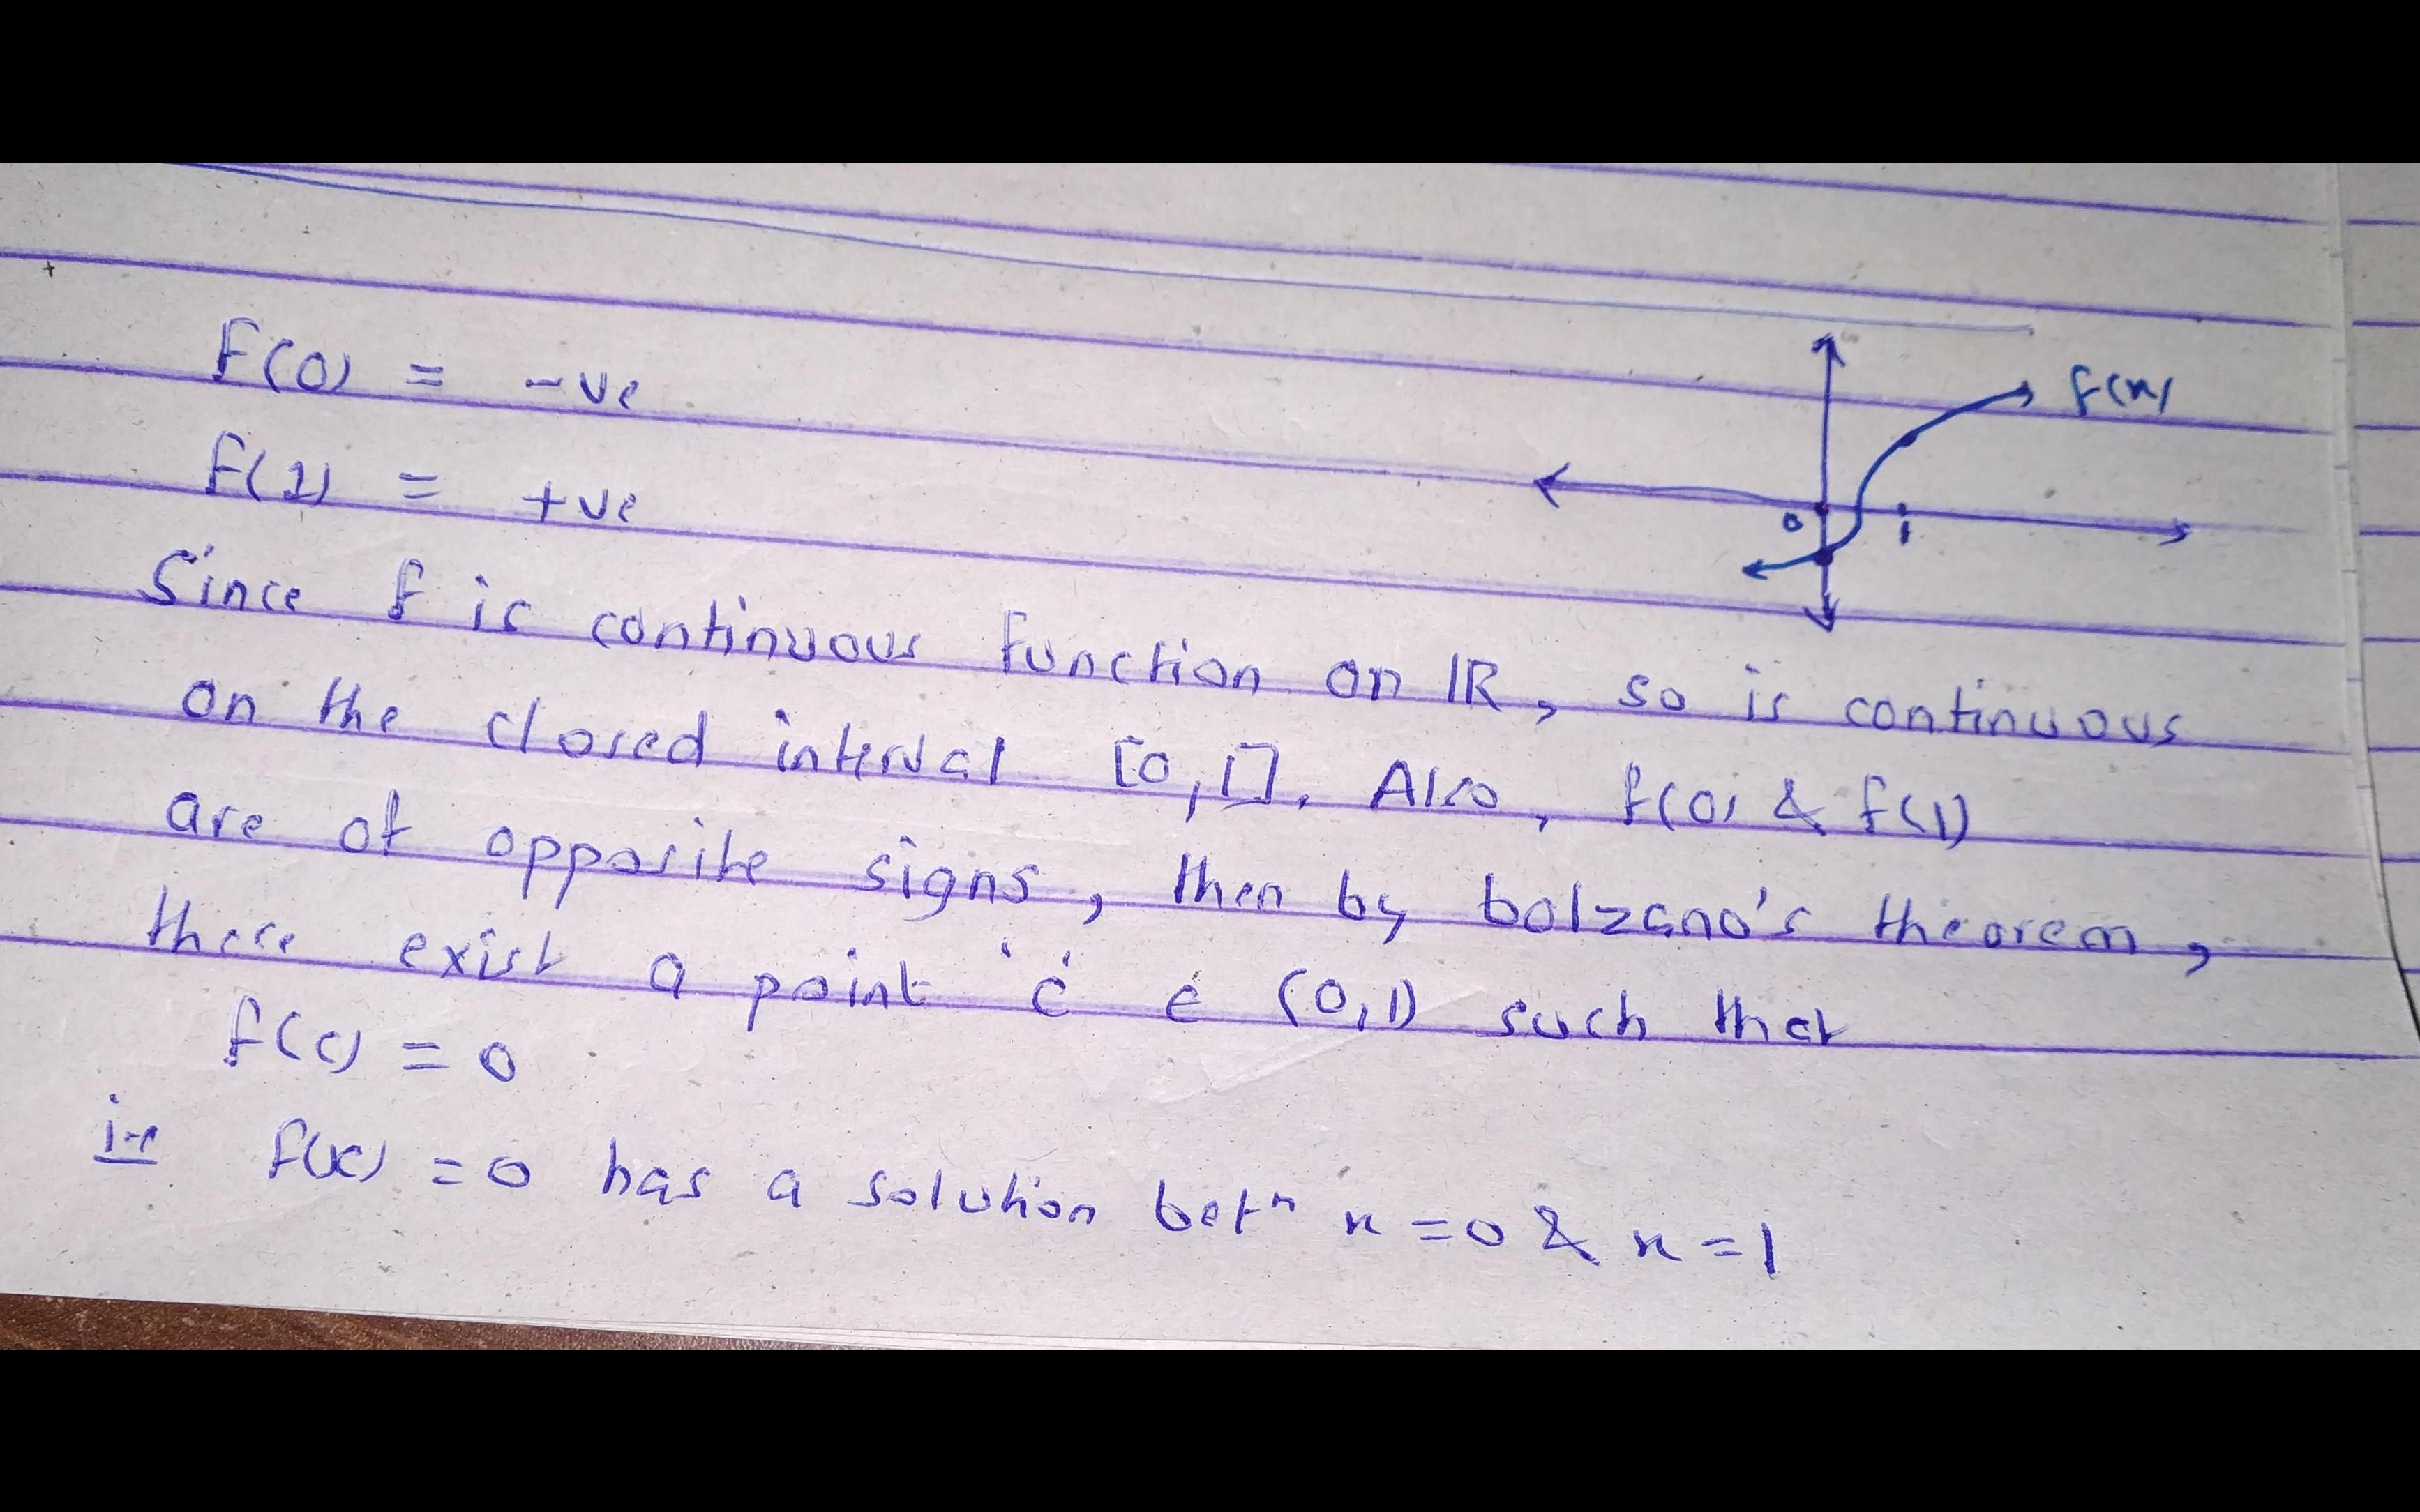 f(0) = -ve
f(1) = +ve
f(x)
0 1
Since f is continuous function on IR, so is continuous
on the closed interval [0,1]. Also, f(0) & f(1)
are of opposite signs, then by bolzano's theorem,
there exist a point 'c' ∈ (0,1) such that
f(c) = 0
i.e f(x) = 0 has a solution betⁿ x = 0 & x = 1